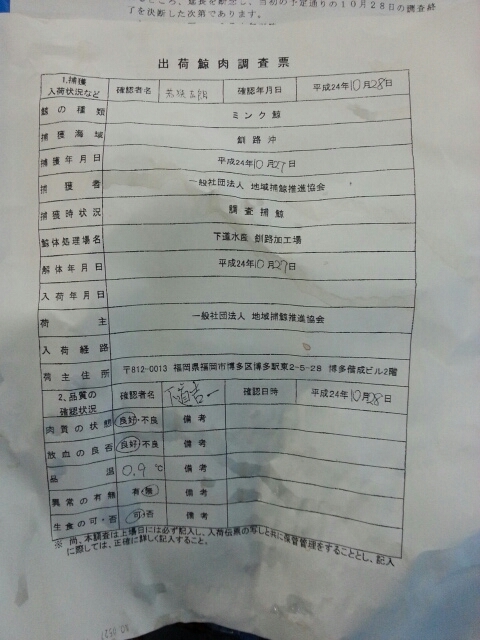 ころ、延長を断念し、当初の予定通りの１０月２８日の調査終
了を決断した次第であります。
出荷鯨肉調査票
1.捕獲入荷状況など 確認者名 確認年月日 平成24年10月28日
鯨の種類 ミンク鯨
捕獲海域 釧路沖
捕獲年月日 平成24年10月27日
捕獲者 一般社団法人 地域捕鯨推進協会
捕獲時状況 調査捕鯨
鯨体処理場名 下道水産 釧路加工場
解体年月日 平成24年10月27日
入荷年月日
荷主 一般社団法人 地域捕鯨推進協会
入荷経路
荷主住所 〒812-0013 福岡県福岡市博多区博多駅東2-5-28 博多偕成ビル2階
2、品質の確認状況 確認者名 確認日時 平成24年10月28日
肉質の状態 良好・不良 備考
放血の良否 良好・不良 備考
品温 0.9 ℃ 備考
異常の有無 有・無 備考
生食の可・否 可・否 備考
※ 尚、本調査は上場日には必ず記入し、入荷伝票の写しと共に保管管理をすることとし、記入
に際しては、正確に詳しく記入すること。